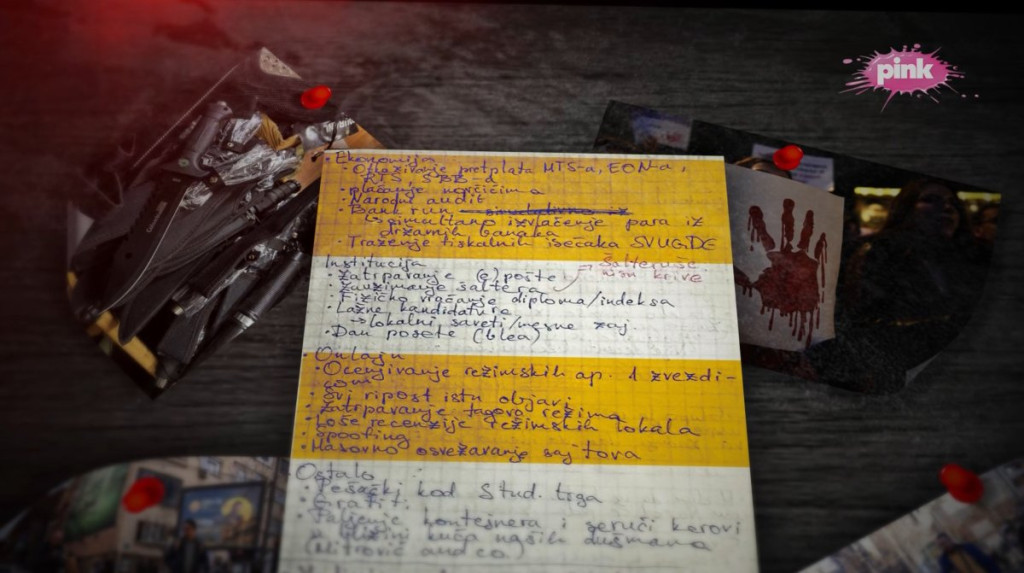 pink
• Ekonomija
• Otkazivanje pretplata MTS-a, EON-a,
RTS SBB-a
• plaćanje novčićima
• Narodni audit
• Bank run
↳ simultano izvlačenje para iz
državnih banaka
• Traženje fiskalnih isečaka SVUGDE
Institucija
• Zatrpavanje (e)pošte
→ šalteruše
nisu krive
• Zauzimanje šaltera
• Fizičko vraćanje diploma/indeksa
• Lažne kandidature
→ lokalni saveti/mesne zaj.
• Dan posete (blea)
• Onlajn
• Ocenjivanje režimskih ap. 1 zvezdi-
com
• Svi ripost istu objavi
• Zatrpavanje tagova režima
• Loše recenzije režimskih lokala
• Spoofing
• Masovno osvežavanje sajtova
Ostalo
• Pešački kod Stud. trga
• Grafit.
• Paljenje kontejnera i
u blizini kuća naših dušmana
(Mitrović and co)